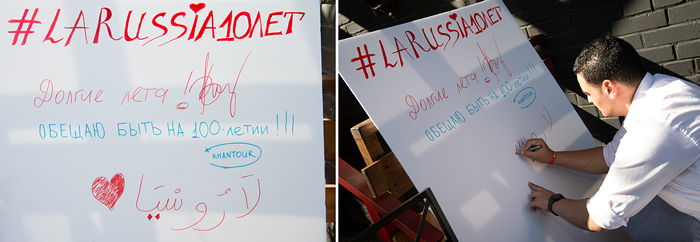 #LARUSSIA10ЛЕТ
Долгие лета!
ОБЕЩАЮ БЫТЬ НА 100-летии!!!
KHANTOUR
لَا رُوسْيَا
#LARUSSIA10ЛЕТ
Долгие лета!
ОБЕЩАЮ БЫТЬ НА 100-летии!!!
KHANTOUR